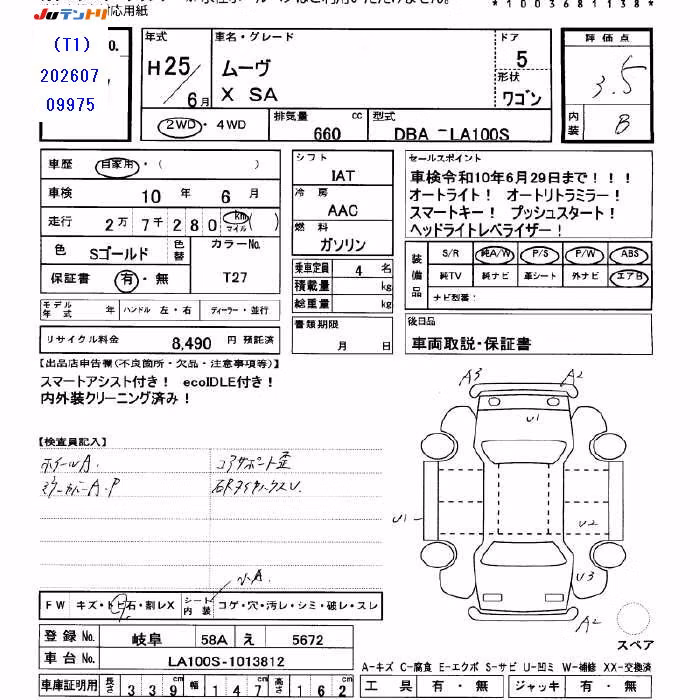 応用紙
*1003681138*
JUテントリ
(T1)
202607
09975
No.
年式
H25/6月
車名・グレード
ムーヴ
X SA
ドア
5
形状
ワゴン
評価点
3.5
内装
B
2WD・4WD
排気量 cc
660
型式
DBA-LA100S
車歴 自家用・( )
車検 10年 6月
走行 2万7千280 km マイル ( )
色 Sゴールド 色替 カラーNo. T27
保証書 有・無
モデル年式 年 ハンドル 左・右 ディーラー・並行
リサイクル料金 8,490 円 預託済
シフト
IAT
冷房
AAC
燃料
ガソリン
乗車定員 4 名
積載量 kg
総重量 kg
書類期限
月 日
セールスポイント
車検令和10年6月29日まで!!!
オートライト! オートリトラミラー!
スマートキー! プッシュスタート!
ヘッドライトレベライザー!
装備品
S/R 純A/W P/S P/W ABS
純TV 純ナビ 革シート 外ナビ エアB
ナビ型番:
後日品
車両取説・保証書
【出品店申告欄(不良箇所・欠品・注意事項等)】
スマートアシスト付き! ecoIDLE付き!
内外装クリーニング済み!
【検査員記入】
ホイールA.
コアサポート歪
A3
A2
U1
U1
U2
U3
A2
スペア
FW キズ・トビ石・割レX シート内装 コゲ・穴・汚レ・シミ・破レ・スレ
登録No. 岐阜 58A え 5672
車台No. LA100S-1013812
車庫証明用 長さ 339cm 幅 147cm 高さ 162cm
A-キズ C-腐食 E-エクボ S-サビ U-凹ミ W-補修 XX-交換済
工具 有・無 ジャッキ 有・無